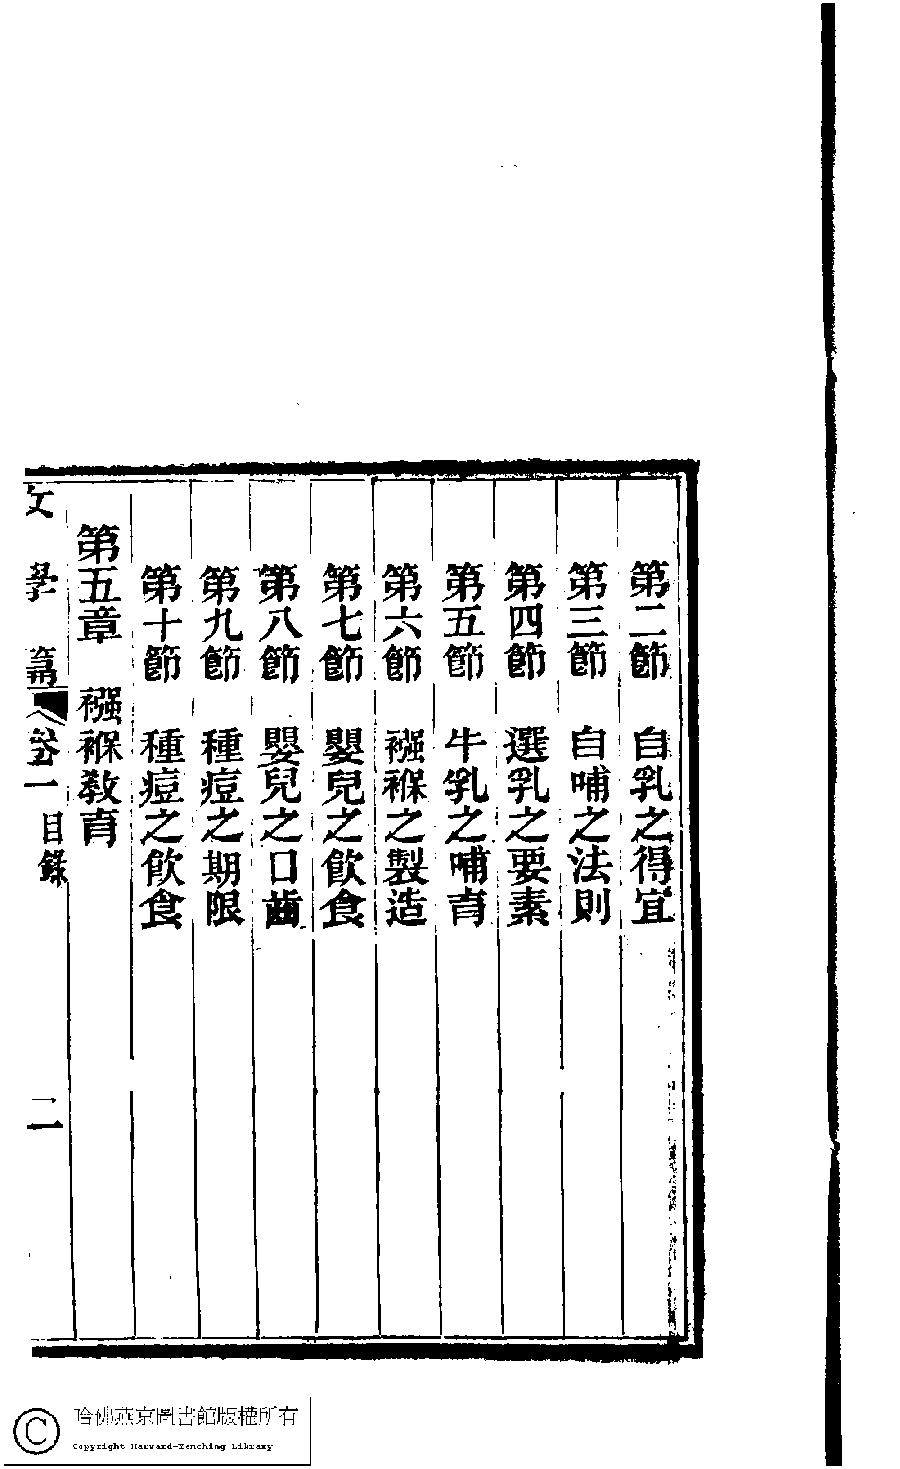 第二節　自乳之得宜
第三節　自哺之法則
第四節　選乳之要素
第五節　牛乳之哺育
第六節　襁褓之製造
第七節　嬰兒之飲食
第八節　嬰兒之口齒
第九節　種痘之期限
第十節　種痘之飲食
第五章　襁褓教育
學　篇　卷一　目錄　二
哈佛燕京圖書館版權所有
Copyright Harvard-Yenching Library